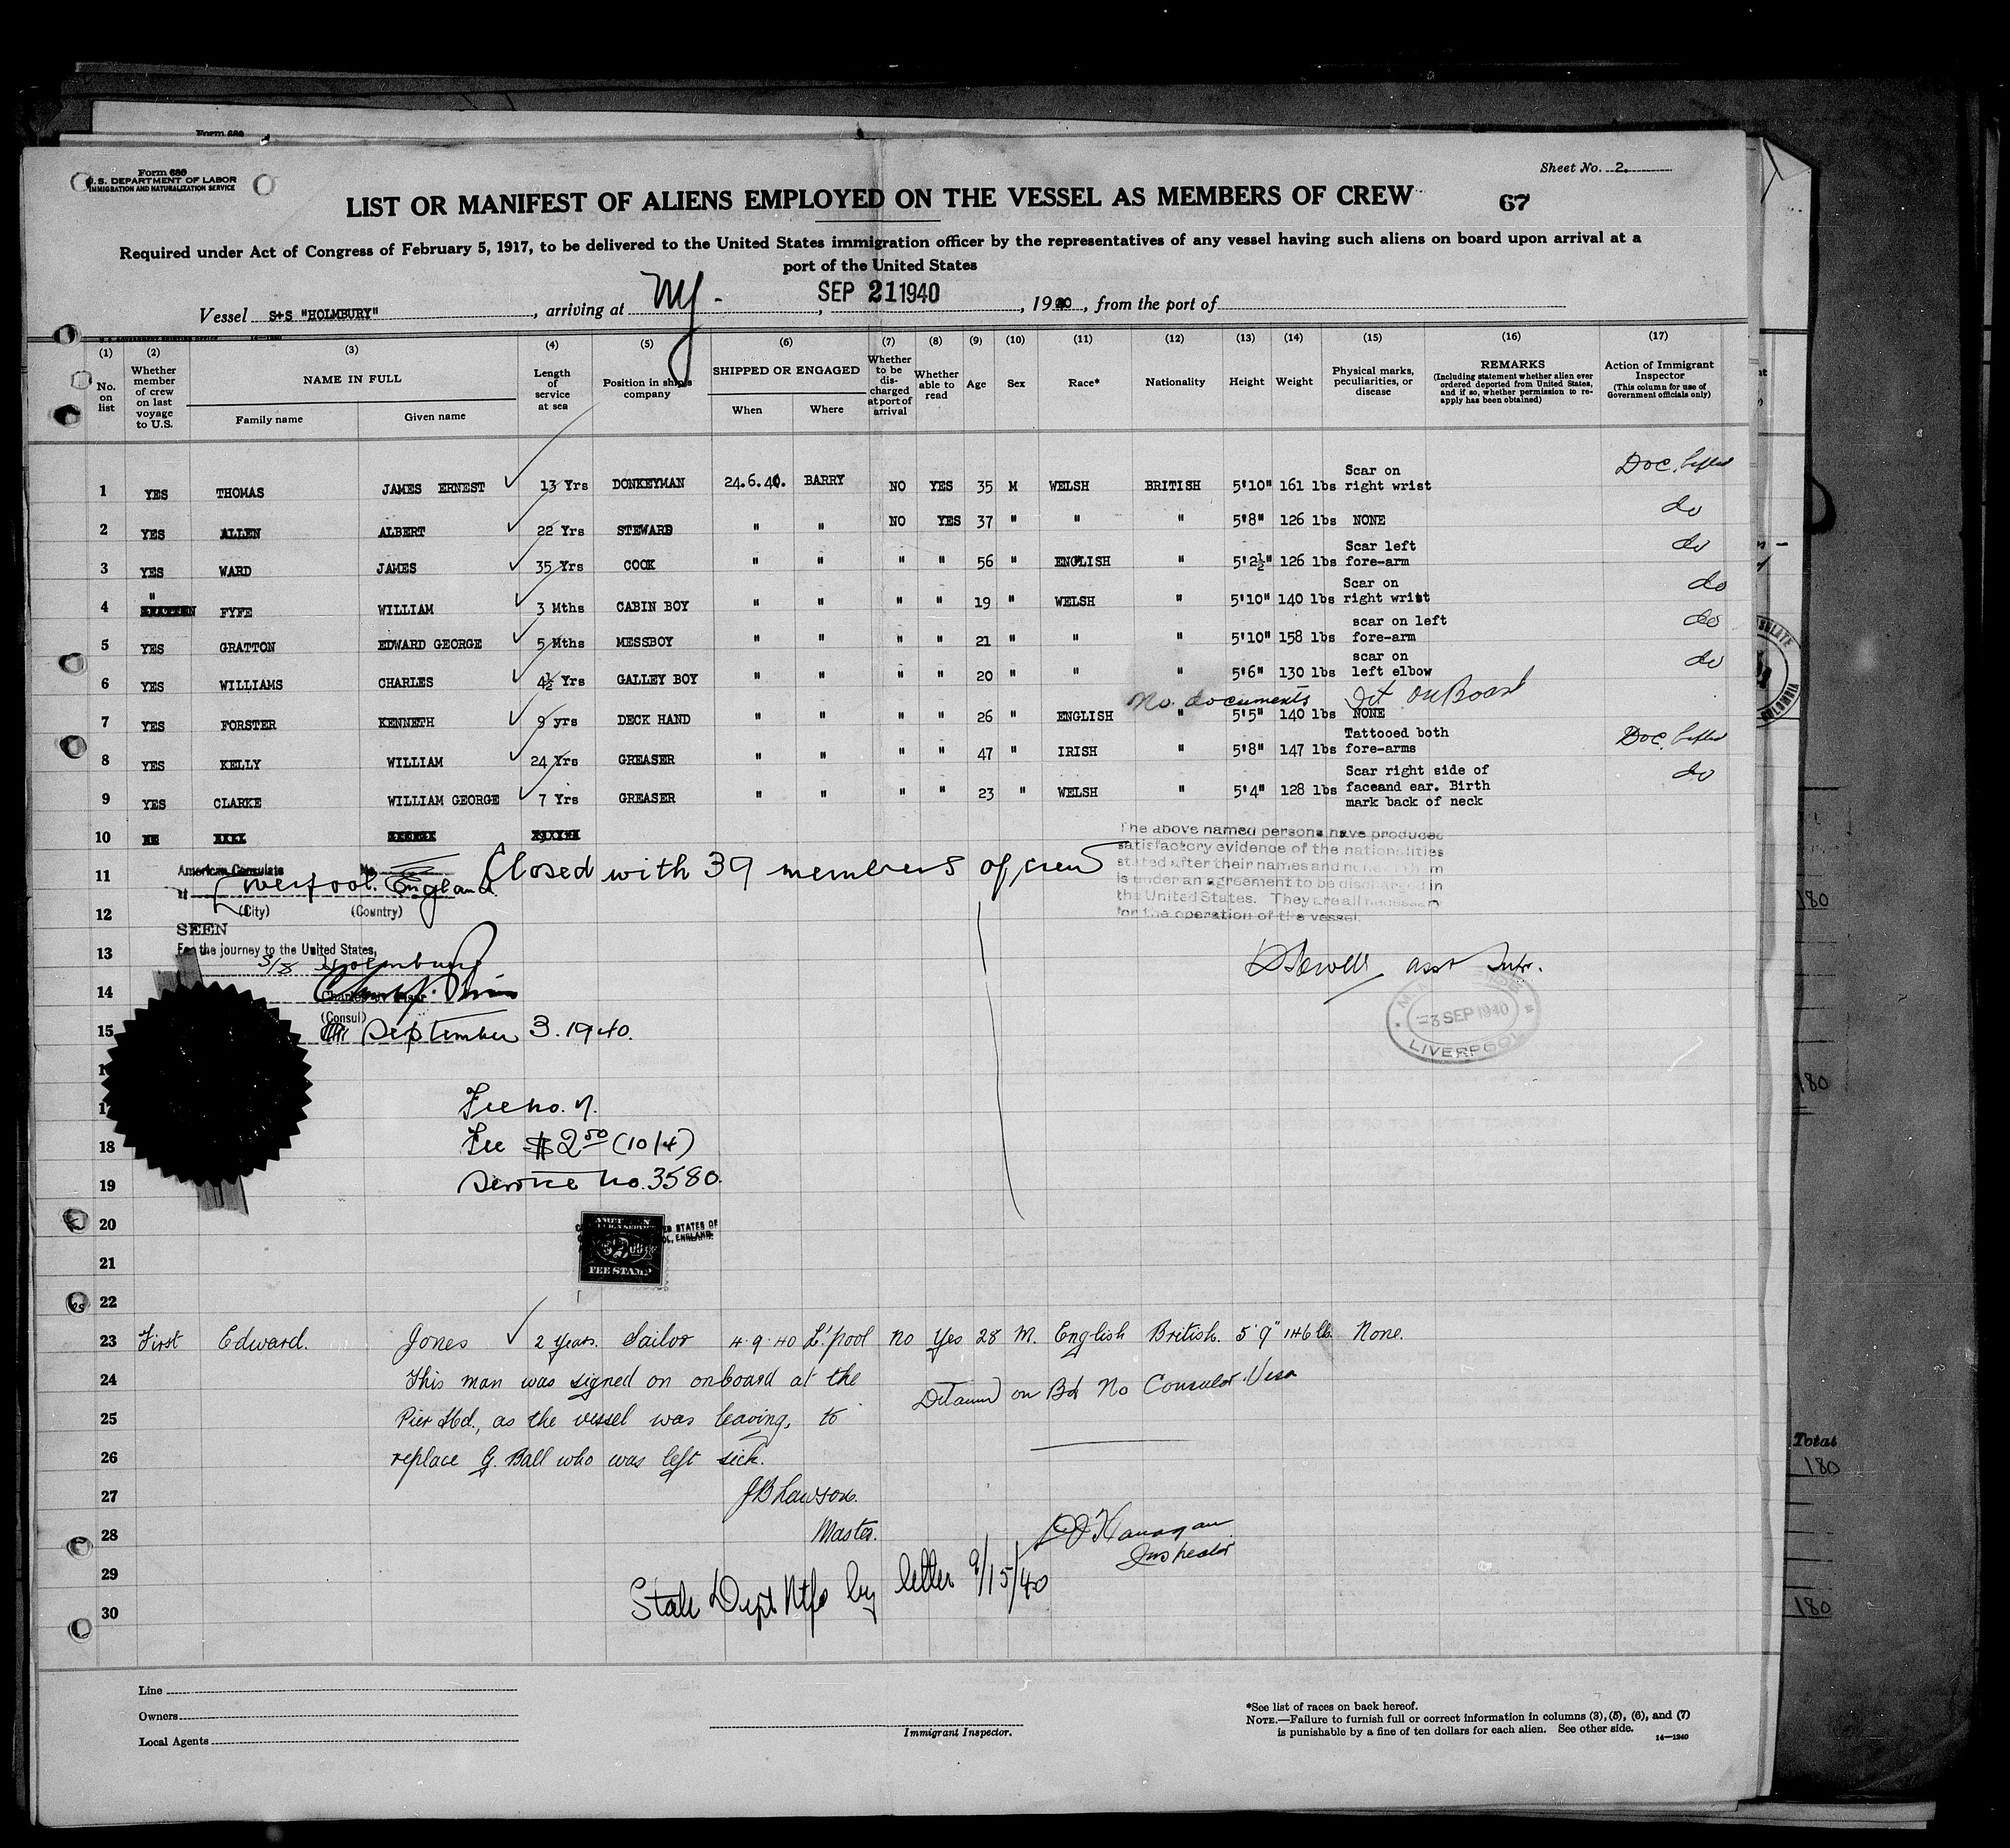 Form 680
Form 680
U.S. DEPARTMENT OF LABOR
IMMIGRATION AND NATURALIZATION SERVICE
Sheet No. 2.
LIST OR MANIFEST OF ALIENS EMPLOYED ON THE VESSEL AS MEMBERS OF CREW
67
Required under Act of Congress of February 5, 1917, to be delivered to the United States immigration officer by the representatives of any vessel having such aliens on board upon arrival at a
port of the United States
Vessel S+S "HOLMBURY", arriving at NY - , SEP 21 1940, 1940, from the port of
(1) (2) (3) (4) (5) (6) (7) (8) (9) (10) (11) (12) (13) (14) (15) (16) (17)
No. on list
Whether member of crew on last voyage to U.S.
NAME IN FULL
Family name
Given name
Length of service at sea
Position in ship's company
SHIPPED OR ENGAGED
When
Where
Whether to be discharged at port of arrival
Whether able to read
Age
Sex
Race*
Nationality
Height
Weight
Physical marks, peculiarities, or disease
REMARKS
(Including statement whether alien ever ordered deported from United States, and if so, whether permission to re-apply has been obtained)
Action of Immigrant Inspector
(This column for use of Government officials only)
1 YES THOMAS JAMES ERNEST 13 Yrs DONKEYMAN 24.6.40. BARRY NO YES 35 M WELSH BRITISH 5'10" 161 lbs Scar on right wrist Doc. lifted
2 YES ALLEN ALBERT 22 Yrs STEWARD " " NO YES 37 " " " 5'8" 126 lbs NONE do
3 YES WARD JAMES 35 Yrs COOK " " " " 56 " ENGLISH " 5'2½" 126 lbs Scar left fore-arm do
4 " FYFE WILLIAM 3 Mths CABIN BOY " " " " 19 " WELSH " 5'10" 140 lbs Scar on right wrist do
5 YES GRATTON EDWARD GEORGE 5 Mths MESSBOY " " " " 21 " " 5'10" 158 lbs scar on left fore-arm do
6 YES WILLIAMS CHARLES 4½ Yrs GALLEY BOY " " " " 20 " " " 5'6" 130 lbs scar on left elbow do
No documents Det on Board
7 YES FORSTER KENNETH 9 yrs DECK HAND " " " " 26 " ENGLISH " 5'5" 140 lbs NONE
8 YES KELLY WILLIAM 24 Yrs GREASER " " " " 47 " IRISH " 5'8" 147 lbs Tattooed both fore-arms Doc. lifted
9 YES CLARKE WILLIAM GEORGE 7 Yrs GREASER " " " " 23 " WELSH " 5'4" 128 lbs Scar right side of faceand ear. Birth mark back of neck do
10
11 American Consulate No.
Liverpool. England
Closed with 39 members of crew
(City) (Country)
The above named persons have produced
satisfactory evidence of the nationalities
stated after their names and none of them
is under an agreement to be discharged in
the United States. They are all necessary
for the operation of the vessel.
12
SEEN
13 For the journey to the United States,
S/S Holmbury
14
(Consul)
15 September 3. 1940.
asst Supr.
3 SEP 1940
LIVERPOOL
Fee no. 7.
18 Fee $2.50 (10/4)
19 Service no. 3580.
20
FEE STAMP
21
22
23 First Edward. Jones 2 years. Sailor 4.9.40 L'pool no yes 28 M. English British. 5'9" 146 lb. None.
24 This man was signed on onboard at the
Detained on Bd No Consular Visa
25 Pier Hd., as the vessel was leaving, to
26 replace G. Ball who was left sick.
27 JB Lawson.
28 Master.
Inspector
29 State Dept Ntfd by letter 9/15/40
30
Line
Owners
Local Agents
Immigrant Inspector.
*See list of races on back hereof.
NOTE.—Failure to furnish full or correct information in columns (3), (5), (6), and (7)
is punishable by a fine of ten dollars for each alien. See other side.
14—1240
180
180
Total
180
180